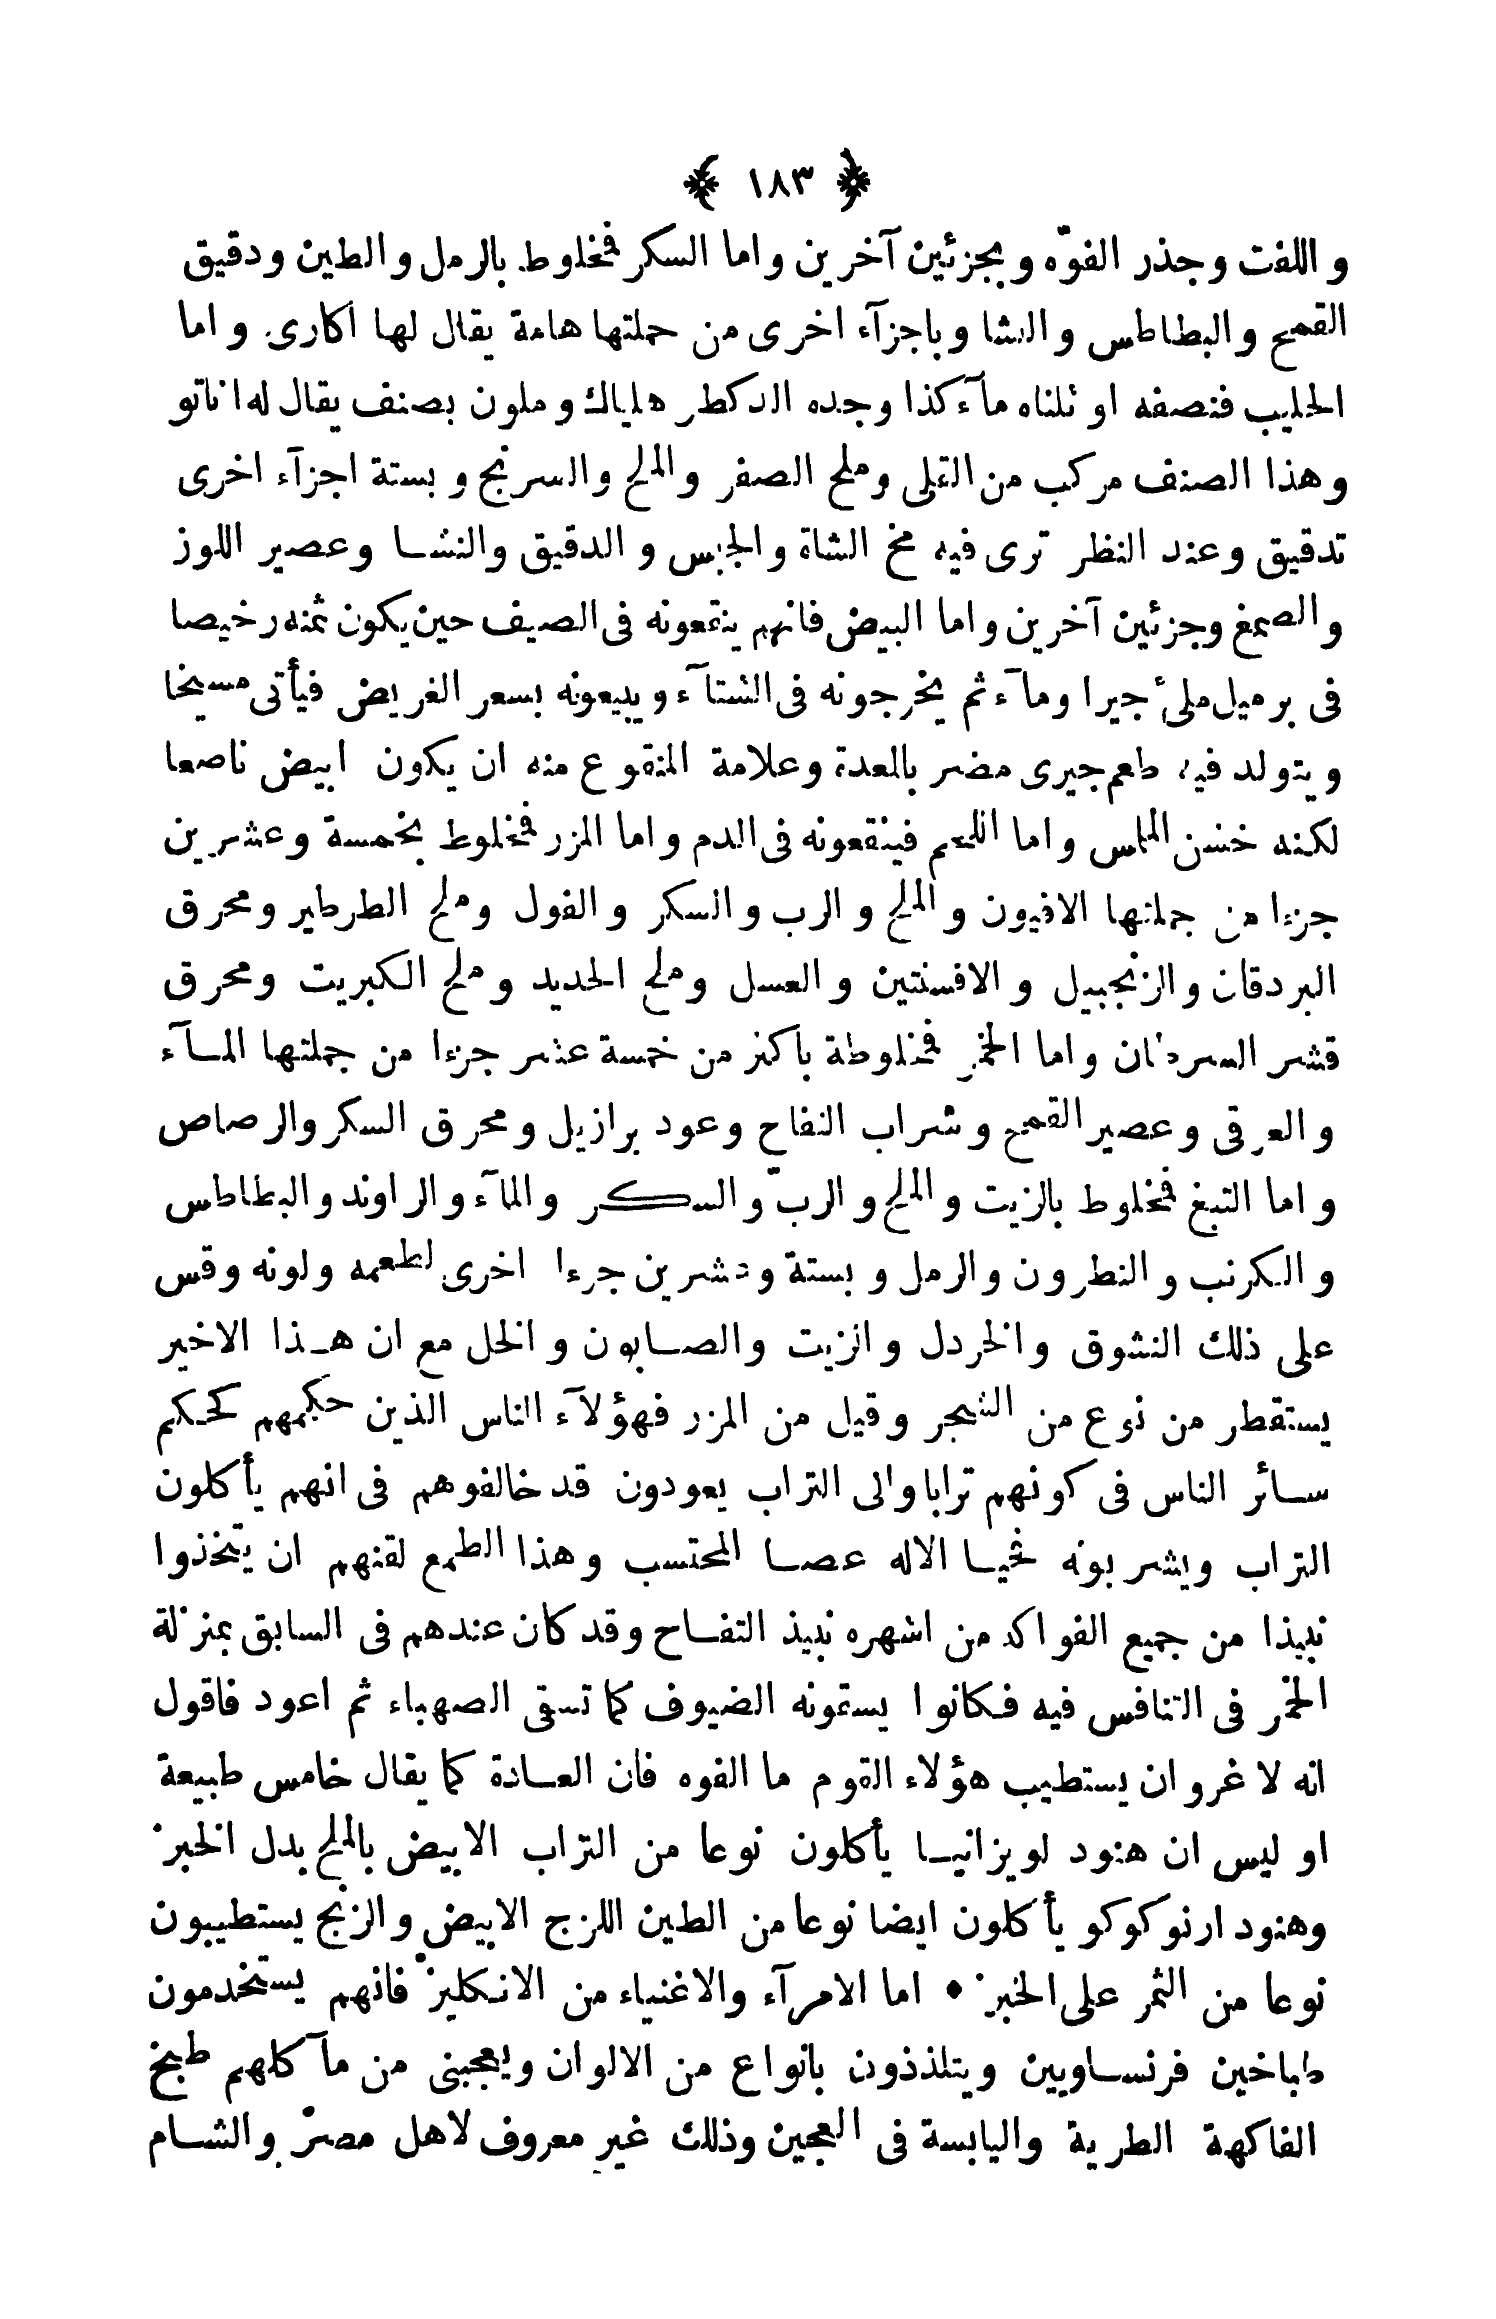 ﴿ ١٨٣ ﴾
واللفت وجذر الفوّه وبجزئين آخرين واما السكر فمخلوط بالرمل والطين ودقيق
القمح والبطاطس والنشا وباجزآء اخرى من حملتها هامة يقال لها اكارى. واما
الحليب فنصفه او ثلثاه مآء كذا وجده الدكطر هلياك وملون بصنف يقال له اناتو
وهذا الصنف مركب من القلى وملح الصفر والملح والسرنج وبستة اجزآء اخرى
تدقيق وعند النظر ترى فيه مخ الشاة والجبس والدقيق والنشا وعصير اللوز
والصمغ وجزئين آخرين واما البيض فانهم ينقعونه فى الصيف حين يكون ثمنه رخيصا
فى برميل ملئ جيرا ومآء ثم يخرجونه فى الشتآء ويبيعونه بسعر الغريض فيأتى مسيخا
ويتولد فيه طعم جيرى مضر بالمعدة وعلامة المنقوع منه ان يكون ابيض ناصعا
لكنه خشن الملس واما اللحم فينقعونه فى الدم واما المزر فمخلوط بخمسة وعشرين
جزءا من جملتها الافيون والملح والرب والسكر والفول وملح الطرطير ومحرق
البردقان والزنجبيل والافسنتين والعسل وملح الحديد وملح الكبريت ومحرق
قشر السردان واما الخمر فمخلوطة باكثر من خمسة عشر جزءا من جملتها المآء
والعرقى وعصير القمح وشراب التفاح وعود برازيل ومحرق السكر والرصاص
واما التبغ فمخلوط بالزيت والملح والربّ والسكر والمآء والراوند والبطاطس
والكرنب والنطرون والرمل وبستة وعشرين جرءا اخرى لطعمه ولونه وقس
على ذلك النشوق والخردل والزيت والصابون والخل مع ان هذا الاخير
يستقطر من نوع من الشجر وقيل من المزر فهؤلآء الناس الذين حكمهم كحكم
سائر الناس فى كونهم ترابا والى التراب يعودون قد خالفوهم فى انهم يأكلون
التراب ويشربونه فحيا الاله عصا المحتسب وهذا الطمع لقنهم ان يتخذوا
نبيذا من جميع الفواكه من اشهره نبيذ التفاح وقد كان عندهم فى السابق بمنزلة
الخمر فى التنافس فيه فكانوا يسقونه الضيوف كما تسقى الصهباء ثم اعود فاقول
انه لا غرو ان يستطيب هؤلاء القوم ما الفوه فان العادة كما يقال خامس طبيعة
او ليس ان هنود لويزانيا يأكلون نوعا من التراب الابيض بالملح بدل الخبز
وهنود ارنوكوكو يأكلون ايضا نوعا من الطين اللزج الابيض والزنج يستطيبون
نوعا من الثمر على الخبز • اما الامرآء والاغنياء من الانكليز فانهم يستخدمون
طباخين فرنساويين ويتلذذون بانواع من الالوان ويعجبنى من مآكلهم طبخ
الفاكهة الطرية واليابسة فى العجين وذلك غير معروف لاهل مصر والشام